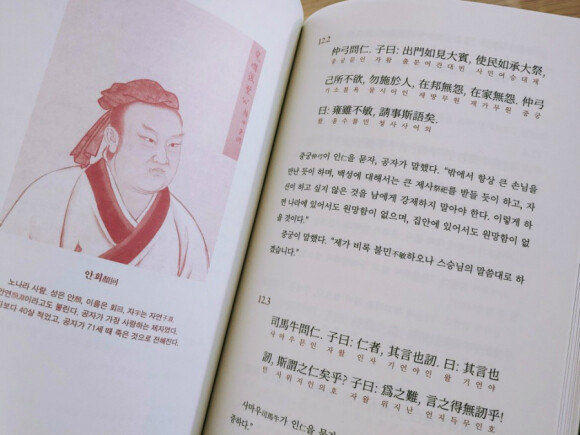 안회顏回
노나라 사람, 성은 안顏, 이름은 회回, 자字는 자연子淵,
안연顏淵이라고도 불린다. 공자가 가장 사랑하는 제자였다.
보다 40살 적었고, 공자가 71세 때 죽은 것으로 전해진다.
12.2
仲弓問仁. 子曰: 出門如見大賓, 使民如承大祭,
중궁문인 자왈 출문여견대빈 사민여승대제
己所不欲, 勿施於人, 在邦無怨, 在家無怨. 仲弓
기소불욕 물시어인 재방무원 재가무원 중궁
曰: 雍雖不敏, 請事斯語矣.
왈 옹수불민 청사사어의
중궁仲弓이 인仁을 묻자, 공자가 말했다. "밖에서 항상 큰 손님을
만난 듯이 하며, 백성에 대해서는 큰 제사祭祀를 받들 듯이 하고, 자
신이 하고 싶지 않은 것을 남에게 강제하지 말아야 한다. 이렇게 하
면 나라에 있어서도 원망함이 없으며, 집안에 있어서도 원망함이 없
을 것이다."
중궁이 말했다. "제가 비록 불민不敏하오나 스승님의 말씀대로 하
겠습니다."
12.3
司馬牛問仁. 子曰: 仁者, 其言也訒. 曰: 其言也
사마우문인 자왈 인자 기언야인 왈 기언야
訒, 斯謂之仁矣乎? 子曰: 爲之難, 言之得無訒乎!
인 사위지인의호 자왈 위지난 언지득무인호
사마우司馬牛가 인仁을 묻자, 공자가 말
중하다."